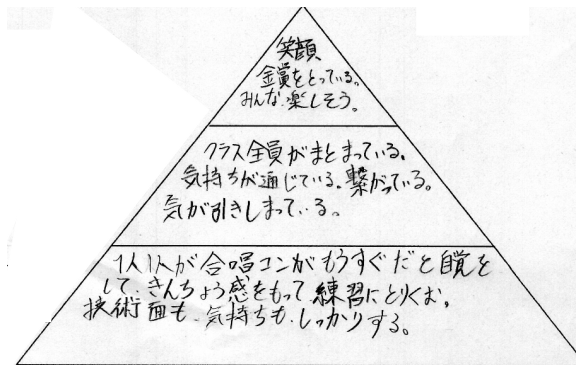 笑顔
金賞をとっている。
みんな楽しそう。
クラス全員がまとまっている。
気持ちが通じている。繋がっている。
気が引きしまっている。
1人1人が合唱コンがもうすぐだと自覚を
して、きんちょう感をもって練習にとりくむ。
技術面も、気持ちも、しっかりする。